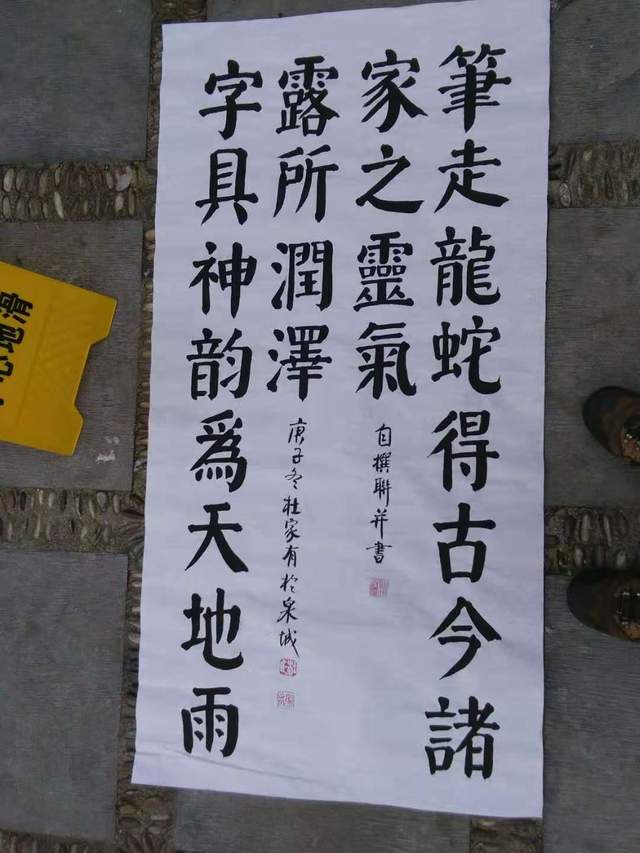 筆走龍蛇得古今諸
家之靈氣
自撰聯并書
字具神韵爲天地雨
露所潤澤
庚子冬杜家有於泉城
心地滑